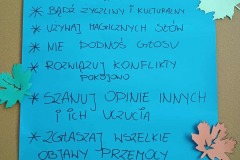 * BĄDŹ ŻYCZLIWY I KULTURALNY
* UŻYWAJ MAGICZNYCH SŁÓW
* NIE PODNOŚ GŁOSU
* ROZWIĄZUJ KONFLIKTY
POKOJOWO
* SZANUJ OPINIE INNYCH
I ICH UCZUCIA
* ZGŁASZAJ WSZELKIE
OBJAWY PRZEMOCY